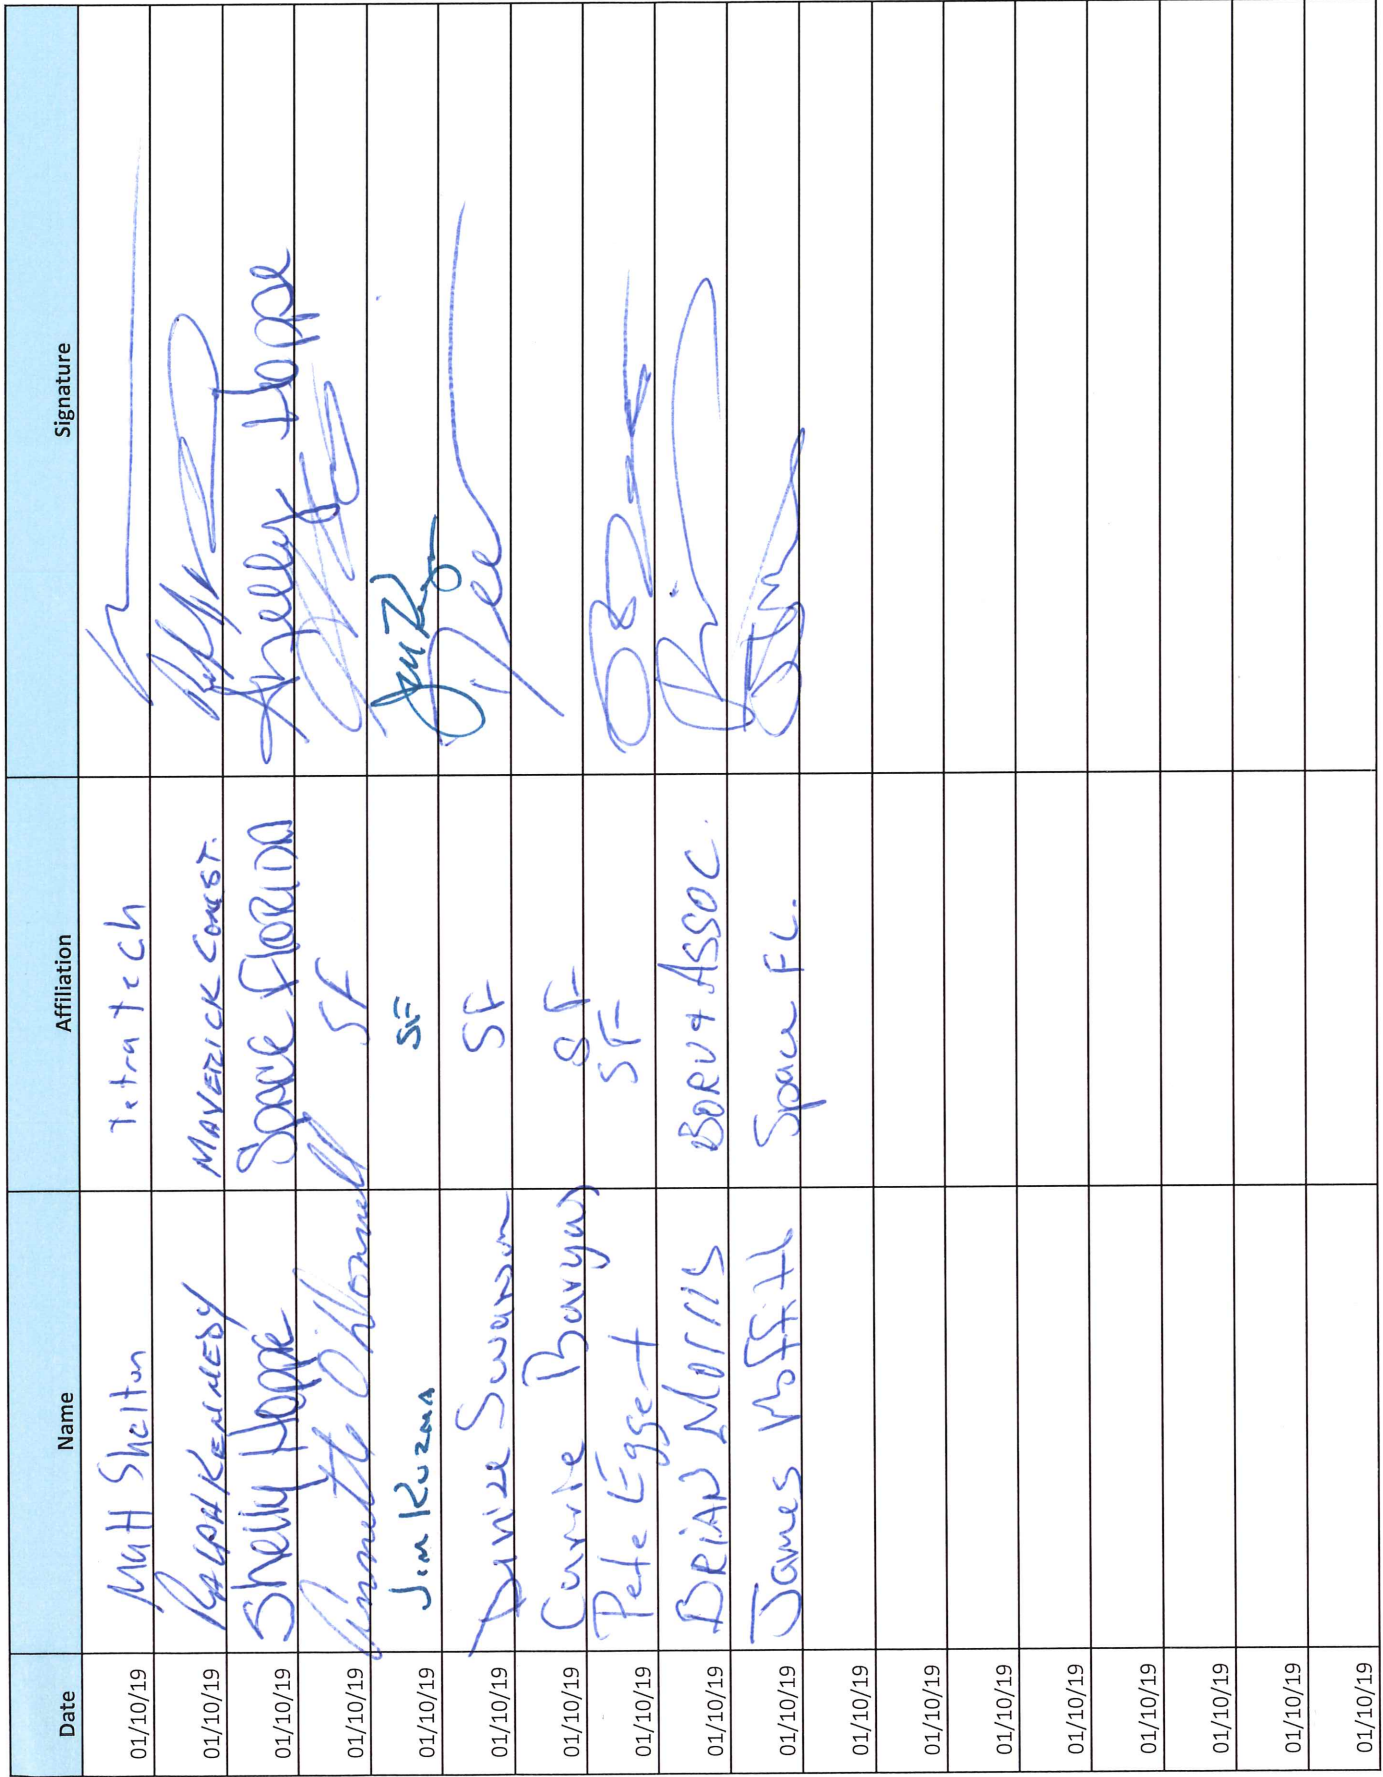 Date Name Affiliation Signature
01/10/19 Matt Shelton Tetra Tech
01/10/19 RALPH KENNEDY MAVERICK CONST.
01/10/19 Shelly Hoppe Space FLORIDA Shelly Hoppe
01/10/19 Annette O'Donnell SF
01/10/19 Jim Kuzma SF
01/10/19 Denise Swanson SF
01/10/19 Currie SF
01/10/19 Pete Eggert SF
01/10/19 BRIAN Morris BORU & ASSOC.
01/10/19 James Moffitt Space FL.
01/10/19
01/10/19
01/10/19
01/10/19
01/10/19
01/10/19
01/10/19
01/10/19